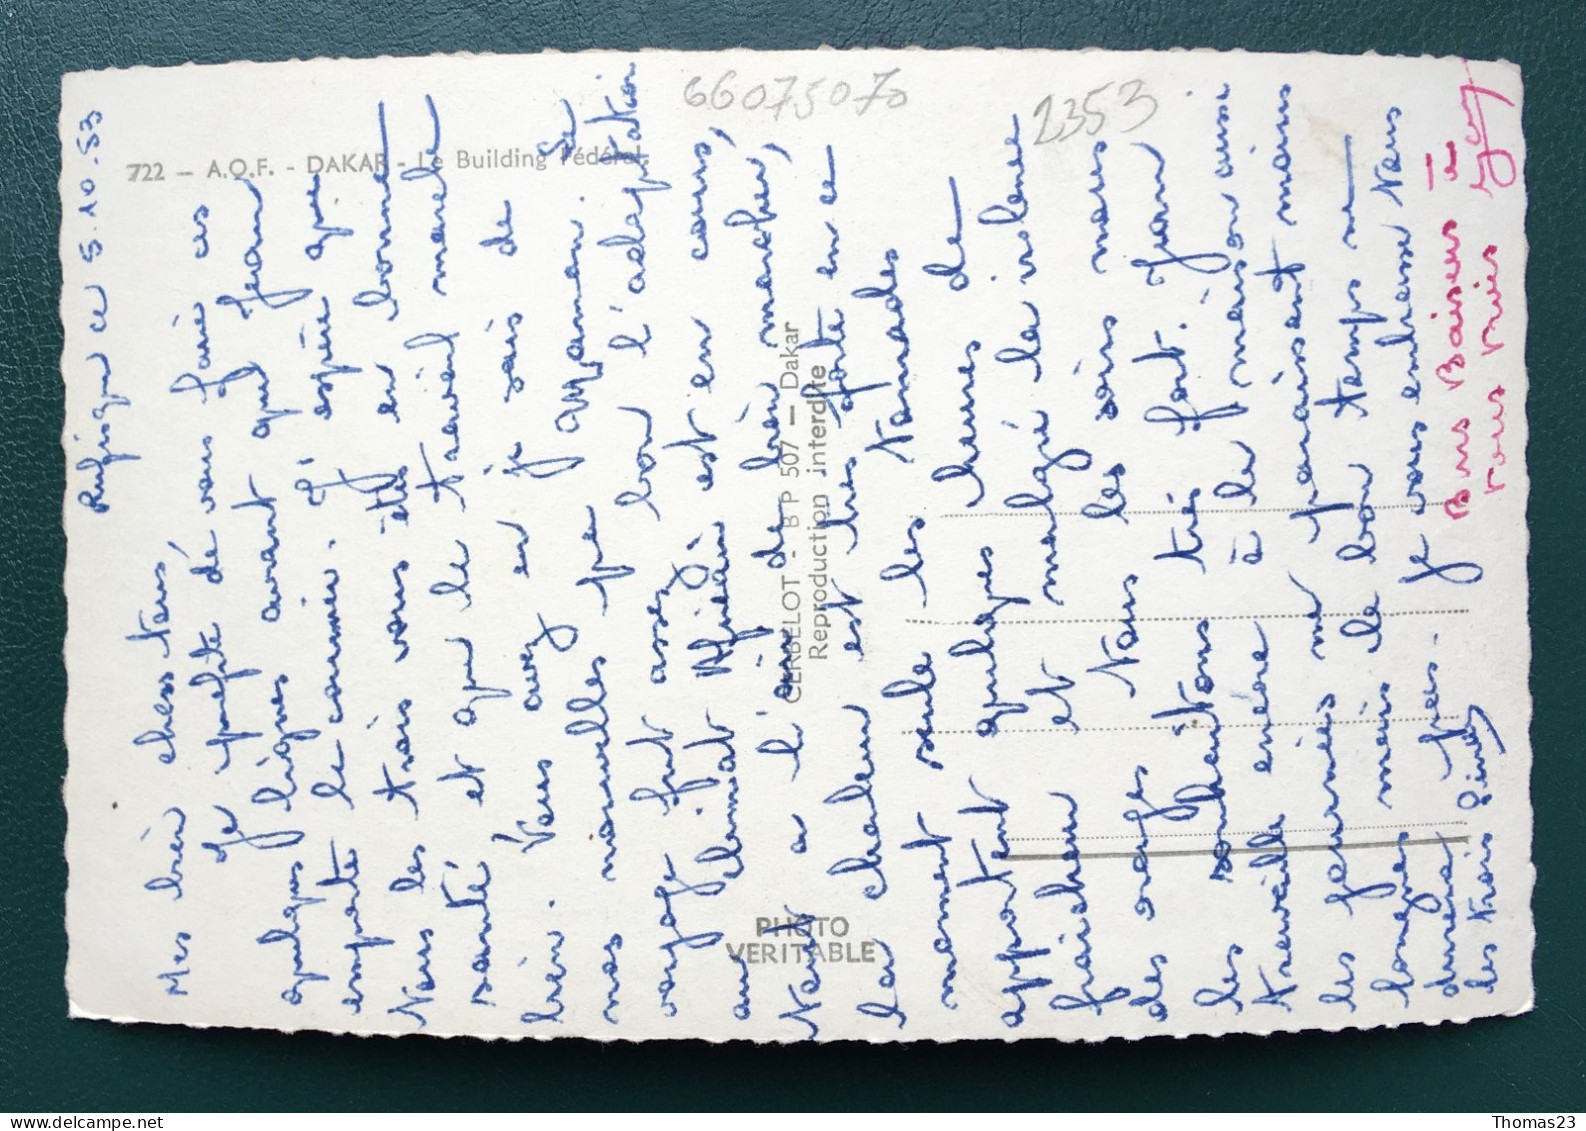 722 — A.O.F. - DAKAR - Le Building Fédéral.
66075070
2353
CERBELOT - B P 507 — Dakar
Reproduction interdite
PHOTO
VERITABLE
Rufisque ce 5.10.53
Mes bien chers tous
Je profite de vous faire ces
quelques lignes avant que Jean
emporte le courrier. J'espère que
Vous les trois vous êtes en bonne
santé et que le travail marche
bien. Vous avez en je sais de
nos nouvelles par maman. Le
voyage fut assez bon l'adaptation
au climat Africain est en cours,
a l'air de bien marcher,
la chaleur est très forte en ce
moment seule les
apportent quelques heures de
fraicheur et malgré la violence
des orages Nous les
les souhaitons très fort. Jean
travaille encore à la maison aussi
les journées me paraissent moins
longues mais le bon temps ne
durera pas. Je vous embrasse tous
les trois
Bons Baisers à
vous trois